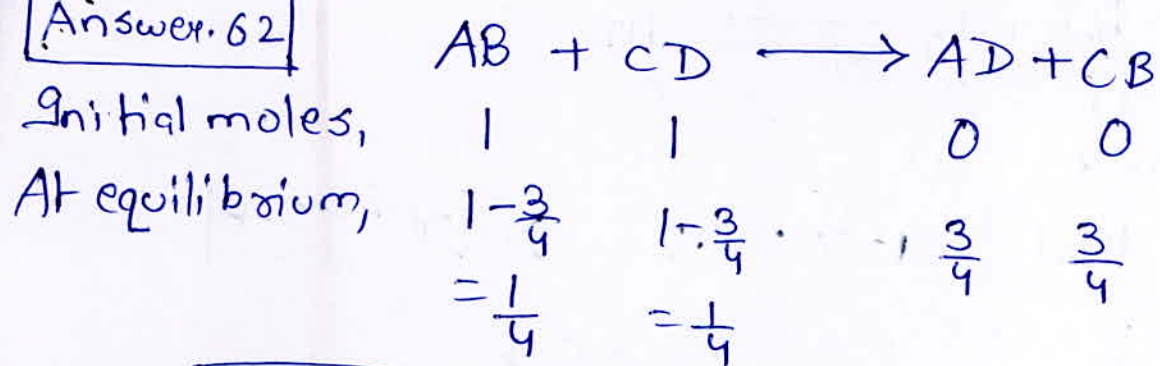 Answer. 62
AB + CD ⟶ AD + CB
Initial moles, 1 1 0 0
At equilibrium, 1-3/4 1-3/4 3/4 3/4
=1/4 =1/4